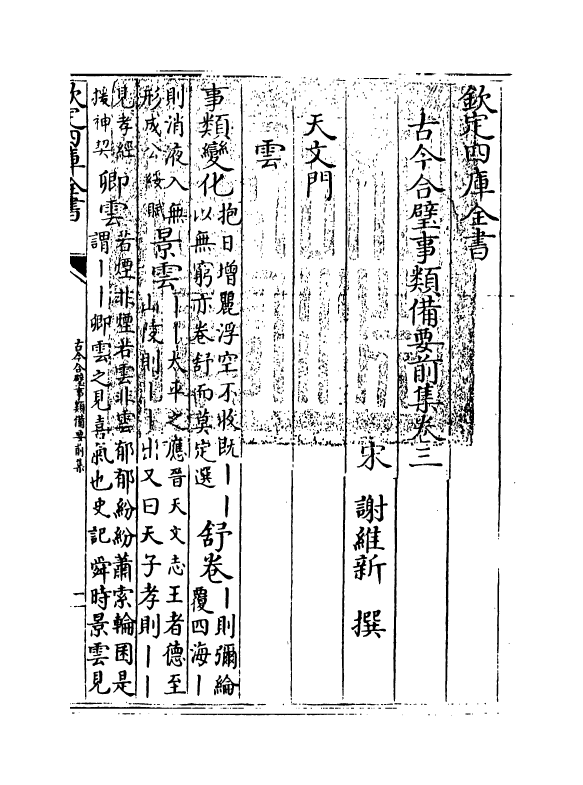 欽定四庫全書
古今合璧事類備要前集卷三
宋 謝維新 撰
天文門
雲
事類變化抱日增麗浮空不收既｜｜舒卷｜則彌綸
以無窮亦卷舒而莫定選覆四海｜
則消液入無景雲｜｜太平之應晉天文志王者德至
形成公綏賦山陵則｜｜出又曰天子孝則｜｜
見孝經卿雲若煙非煙若雲非雲郁郁紛紛蕭索輪囷是
援神契謂｜｜卿雲之見喜氣也史記舜時景雲見
欽定四庫全書
古今合璧事類備要前集